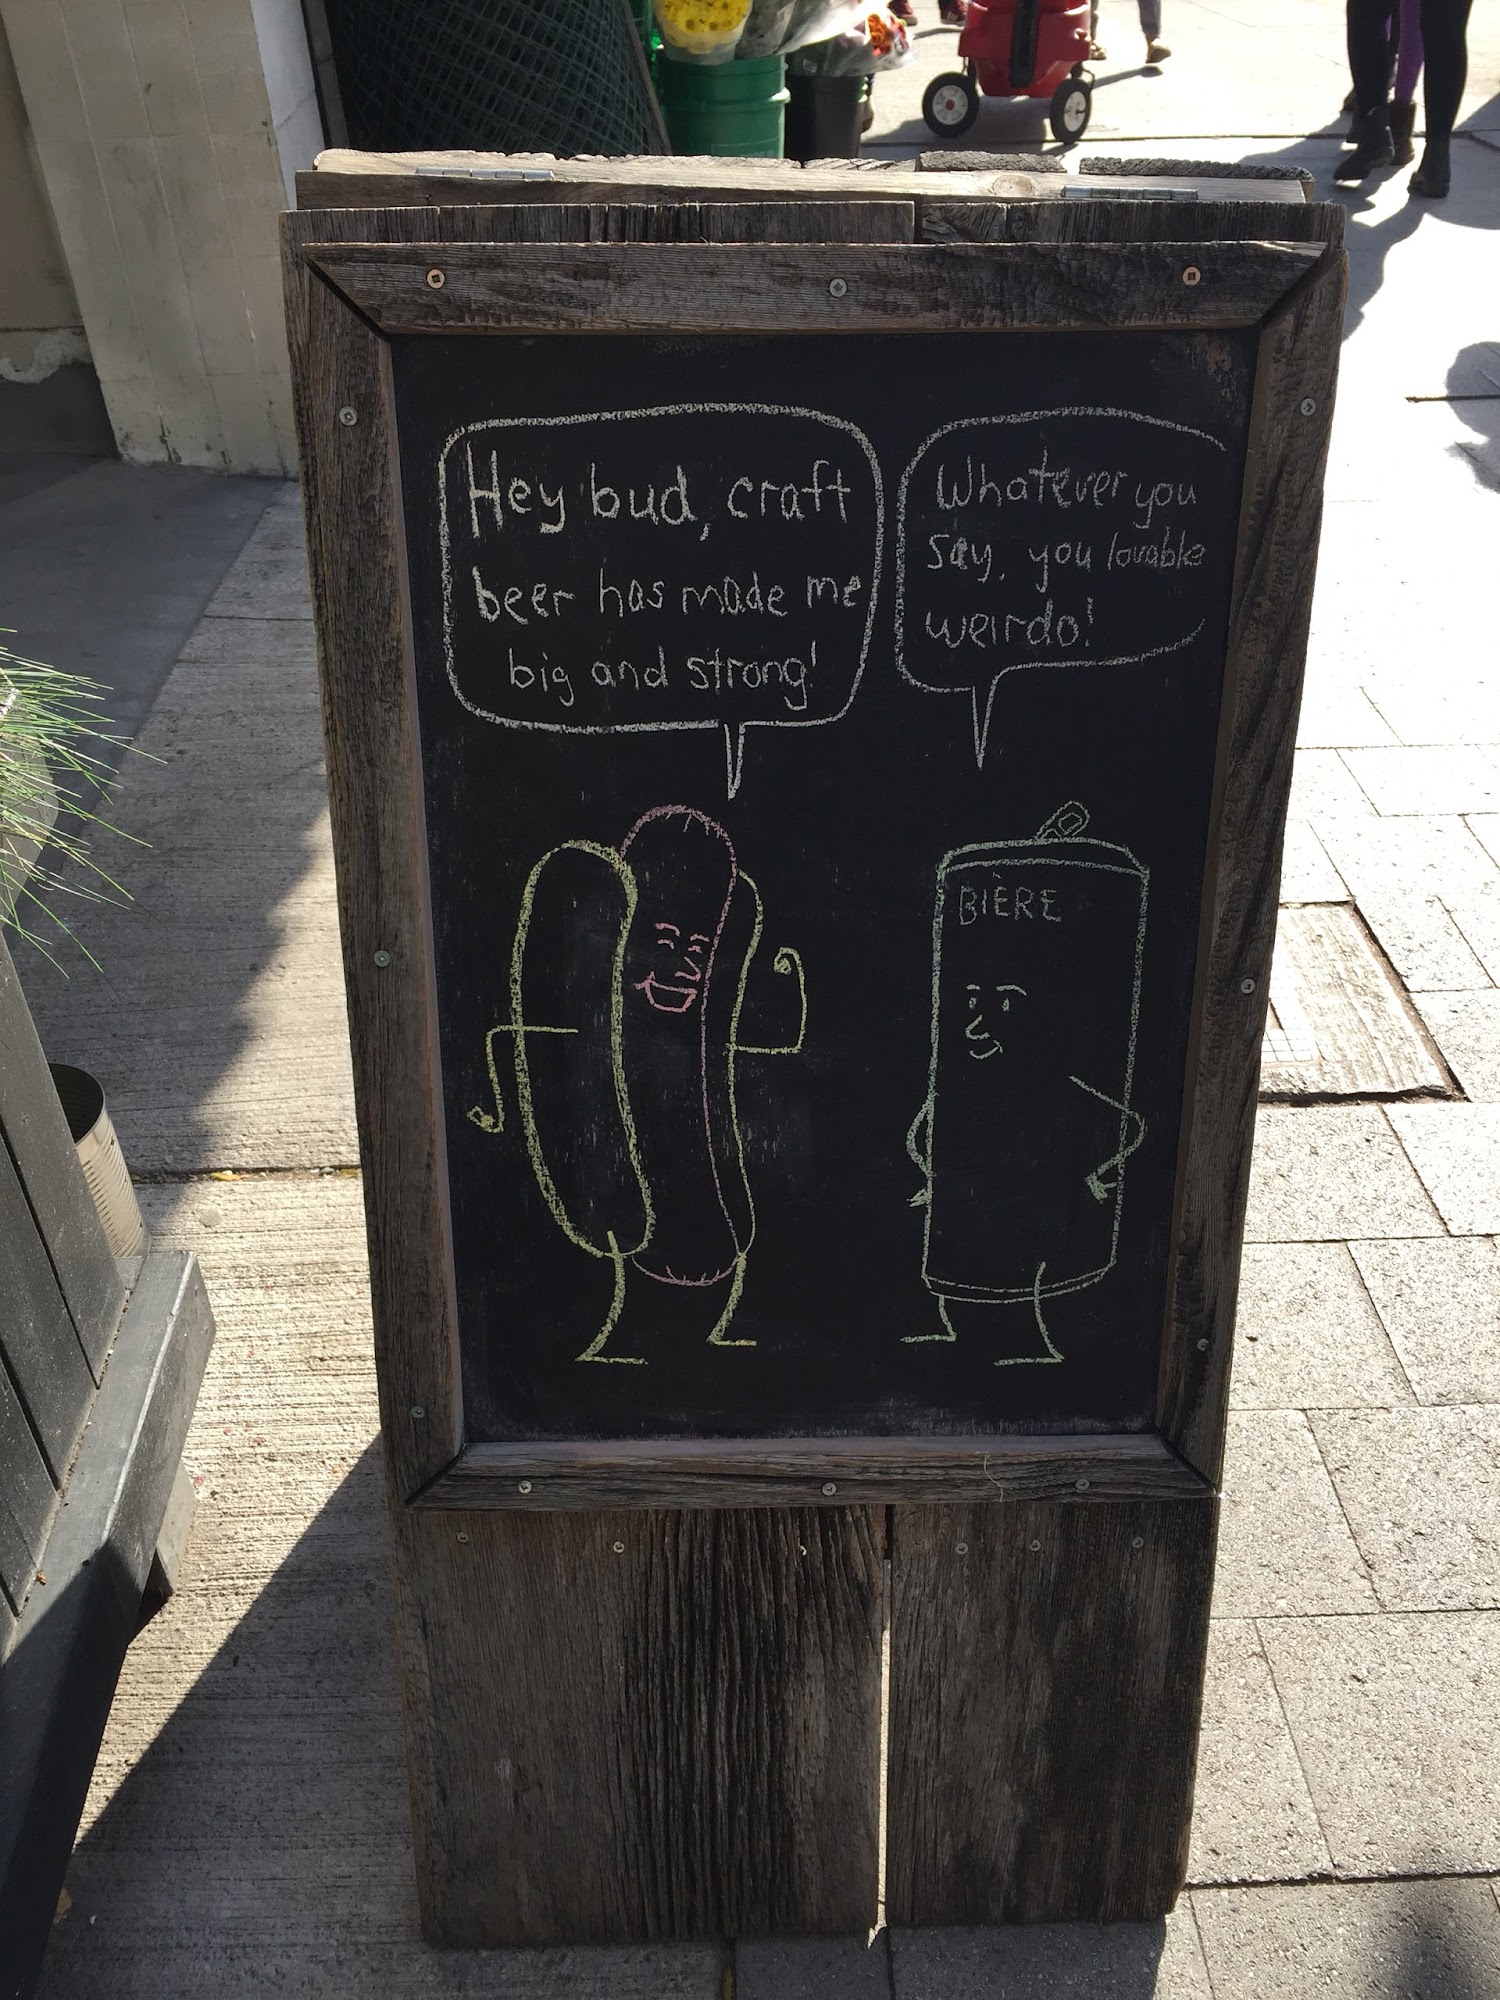 Hey bud, craft
beer has made me
big and strong!
Whatever you
say, you lovable
weirdo!
BIÈRE